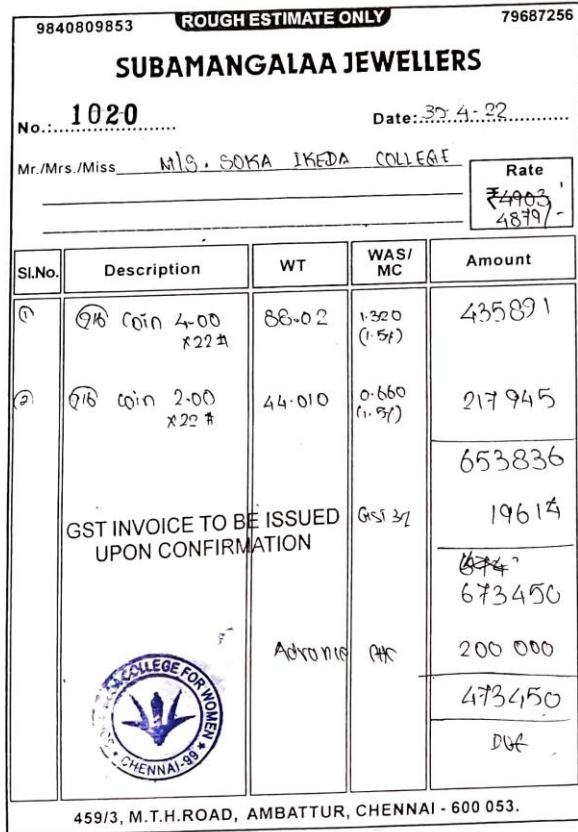 9840809853 ROUGH ESTIMATE ONLY 79687256
SUBAMANGALAA JEWELLERS
No.: 1020 Date: 30-4-22
Mr./Mrs./Miss M/S. SOKA IKEDA COLLEGE
Rate
₹4903
4879/-
Sl.No. Description WT WAS/MC Amount
① 916 Coin 4.00 88.02 1.320 435891
x22 # (1.5%)
② 916 coin 2.00 44.010 0.660 217945
x22 # (1.5%)
653836
GST INVOICE TO BE ISSUED GST 3% 19614
UPON CONFIRMATION
674
673450
Advance 200 000
473450
Due
COLLEGE FOR WOMEN
CHENNAI-99
459/3, M.T.H.ROAD, AMBATTUR, CHENNAI - 600 053.